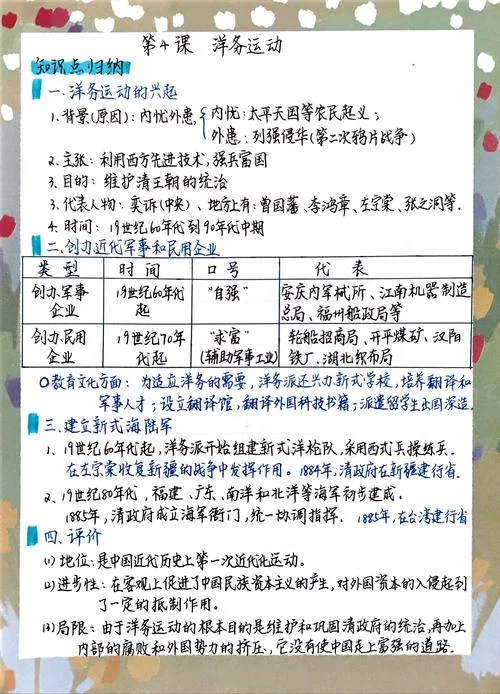 第4课 洋务运动
知识点归纳
一、洋务运动的兴起
1.背景(原因):内忧外患,{内忧:太平天国等农民起义;
外患:列强侵华(第二次鸦片战争)
2.主张:利用西方先进技术,强兵富国
3.目的:维护清王朝的统治
3.代表人物:奕䜣(中央)、地方上有:曾国藩、李鸿章、左宗棠、张之洞等.
4.时间:19世纪60年代到90年代中期
二、创办近代军事和民用企业
类型 时间 口号 代表
创办军事企业 19世纪60年代起 "自强" 安庆内军械所、江南机器制造总局、福州船政局等
创办民用企业 19世纪70年代起 "求富"(辅助军事工业) 轮船招商局、开平煤矿、汉阳铁厂、湖北织布局
○教育文化方面:为适应洋务的需要,洋务派还兴办新式学校,培养翻译和
军事人才;设立翻译馆,翻译外国科技书籍;派遣留学生出国深造.
三、建立新式海陆军
1、19世纪60年代起,洋务派开始组建新式洋枪队,采用西式兵操练兵.
在左宗棠收复新疆的战争中发挥作用。1884年,清政府在新疆建行省.
2、19世纪80年代,福建、广东、南洋和北洋等海军初步建成.
1885年,清政府成立海军衙门,统一协调指挥. 1885年,在台湾建行省
四、评价
(1)地位:是中国近代历史上第一次近代化运动。
(2)进步性:在客观上促进了中国民族资本主义的产生,对外国资本的入侵起到
了一定的抵制作用。
(3)局限:由于洋务运动的根本目的是维护和巩固清政府的统治,再加上
内部的腐败和外国势力的挤压,它没有使中国走上富强的道路.